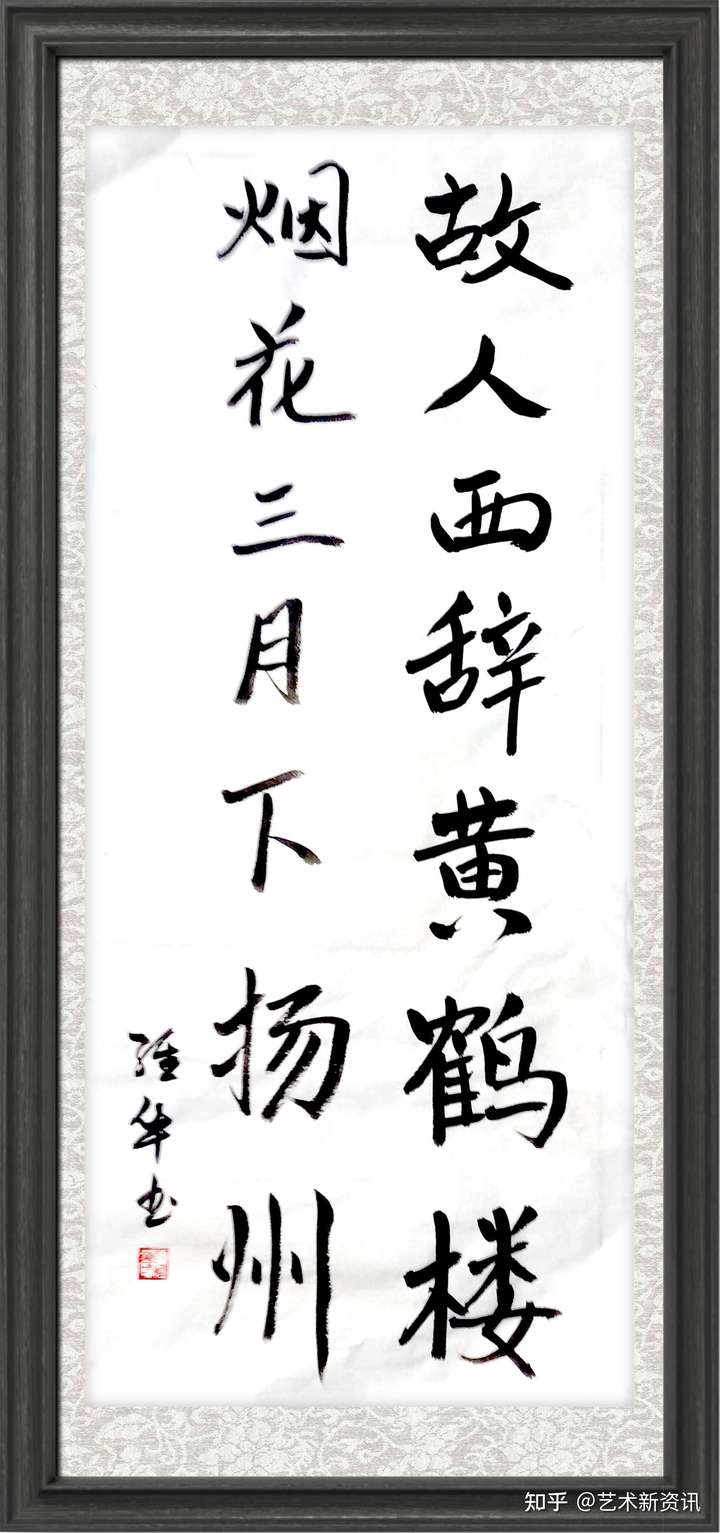 故人西辞黄鹤楼
烟花三月下扬州
维华书
知乎 @艺术新资讯